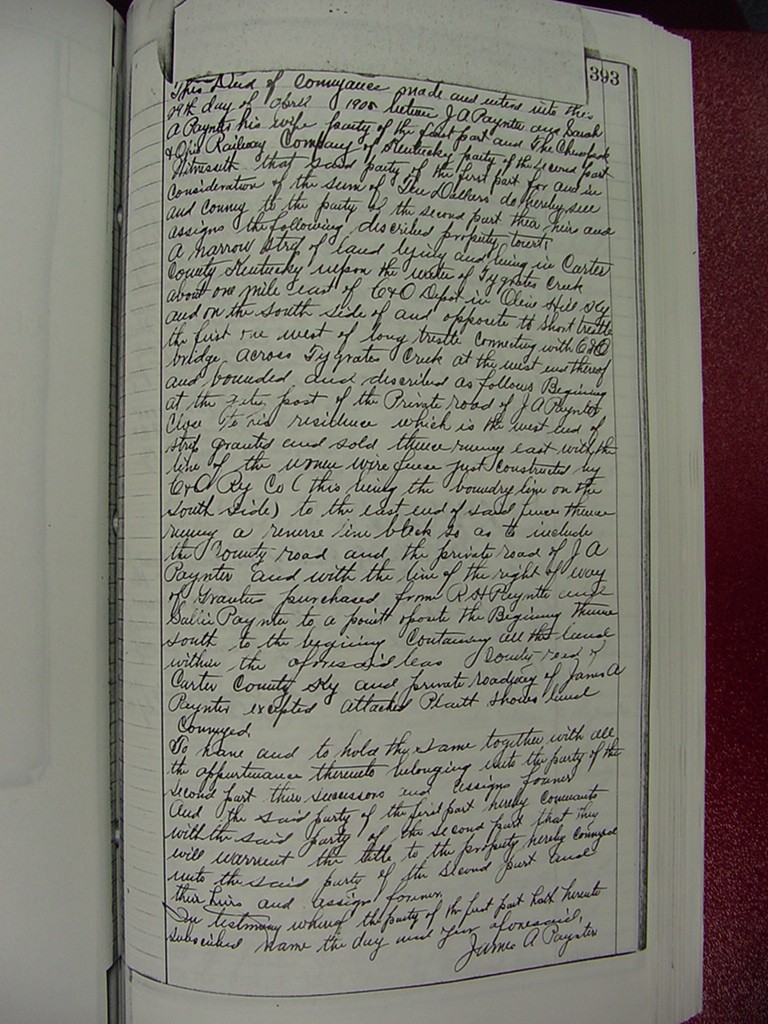 393
This Deed of Conveyance made and entered into this
29th day of April 1905 between J A Paynter and Sarah
A Paynter his wife party of the first part and The Chesapeak
& Ohio Railway Company of Kentucky party of the second part
Witnesseth that said party of the first part for and in
consideration of the sum of Ten Dollars do hereby sell
and convey to the party of the second part their heirs and
assigns the following discribed property towit;
A narrow strip of land lying and being in Carter
County Kentucky upon the water of Tygrates Creek
about one mile east of C&O Depot in Olive Hill Ky
and on the South side of and opposite to short trestle
the first one west of long trestle connecting with C&O
bridge across Tygrates Creek at the west end thereof
and bounded and discribed as follows Begining
at the gate post of the Private road of J A Paynter
close to his residence which is the west end of
strip granted and sold thence runing east with the
line of the woven wire fence just constructed by
C&O Ry Co (this being the boundry line on the
South Side) to the east end of said fence thence
runing a reverse line back so as to include
the County road and the private road of J A
Paynter and with the line of the right of way
of Grantees purchased from R H Paynter and
Sallie Paynter to a point oposite the Begining thence
South to the begining Containing all the land
within the aforesaid County road of
Carter County Ky and private roadway of James A
Paynter excepted attached Platt shows land
Conveyed.
To have and to hold the same together with all
the appurtenance thereunto belonging unto the party of the
second part their successors and assigns forever
And the said party of the first part hereby covenants
with the said party of the second part that they
will warrant the title to the property hereby conveyed
unto the said party of the second part and
their heirs and assigns forever.
In testimony whereof the party of the first part hath hereunto
subscribed name the day and year aforesaid,
James A Paynter